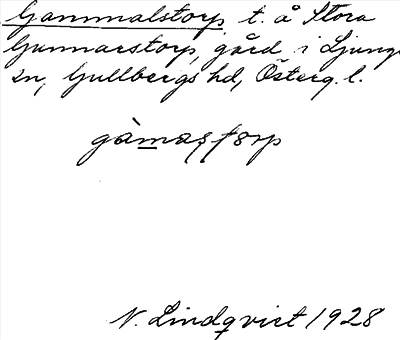 Gammalstorp t. å Stora
Gunnarstorp, gård i Ljungs
sn, Gullbergs hd, Österg. l.
gàmaʂtorp
N. Lindqvist 1928